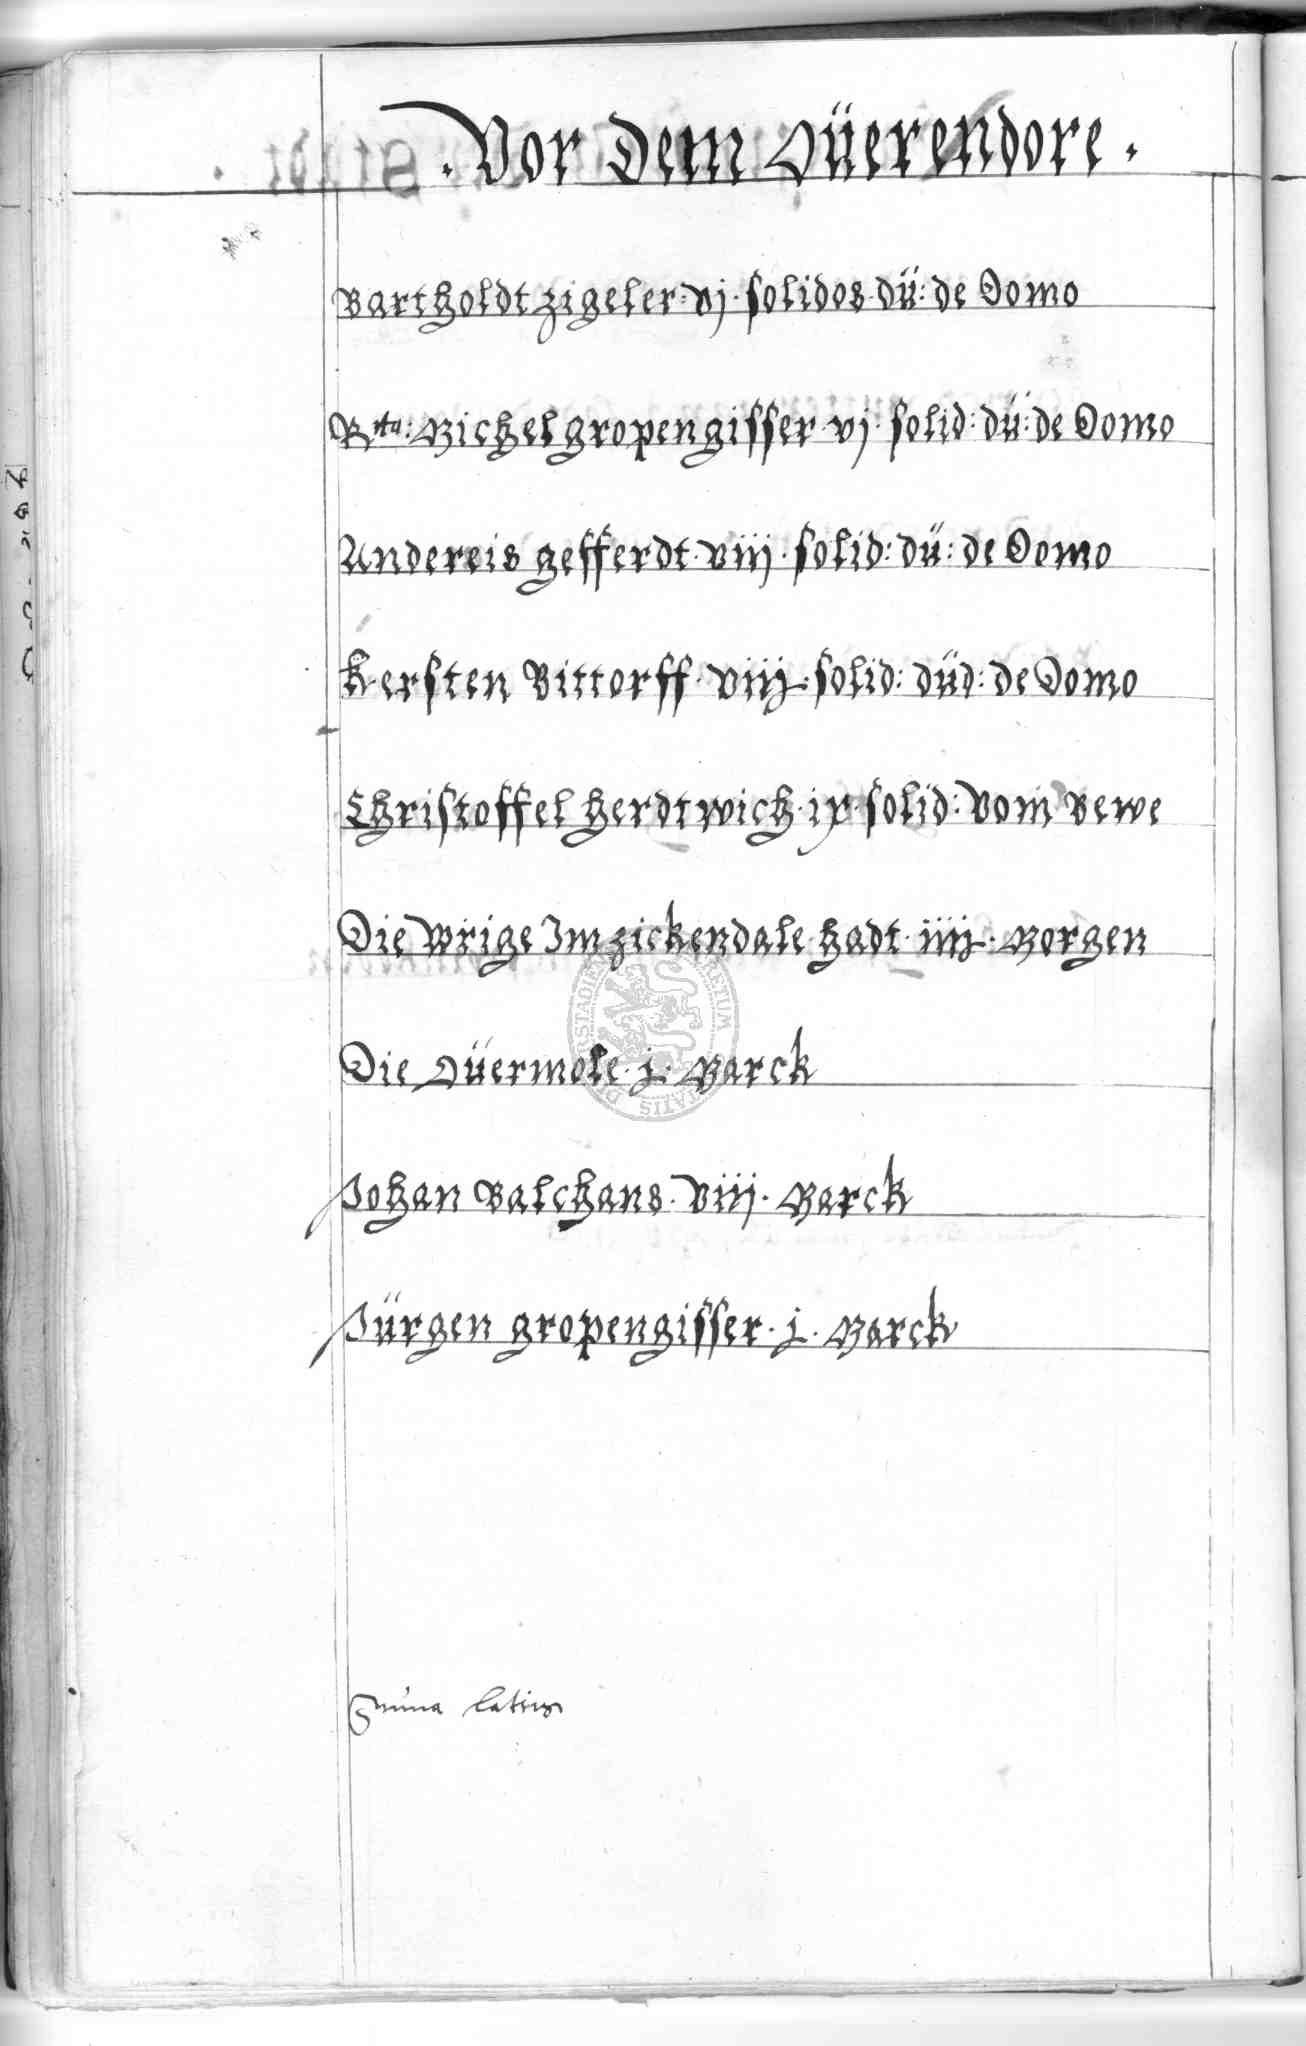 . Vor Dem Oüerendore .
Bartholdt zigeler · vj · solidos · dü: de Domo
Rta: Michel gropengisser · vj · solid: dü: de Domo
Andereis gefferdt · viij · solid: dü: de Domo
Kersten Bittorff · viij · solid: düd: de Domo
Christoffel Herdtwich · ix · solid: vom
Die Wrige Im zickendale hadt · iiij · Morgen
Die Oüermole · j · Marck
Johan Balchans · viij · Marck
Jürgen gropengisser · j · Marck
Suma lateris